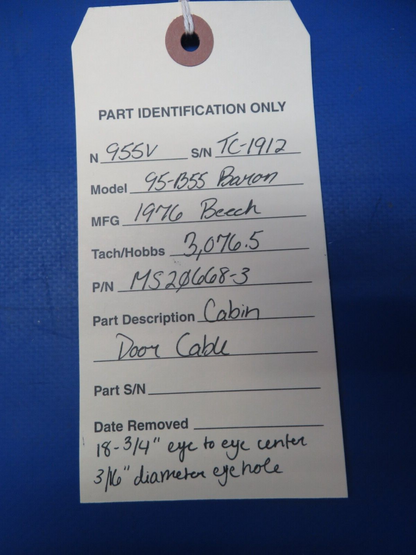 PART IDENTIFICATION ONLY
N 955V S/N TC-1912
Model 95-B55 Baron
MFG 1976 Beech
Tach/Hobbs 3,076.5
P/N MS20668-3
Part Description Cabin
Door Cable
Part S/N
Date Removed
18-3/4" eye to eye center
3/16" diameter eye hole